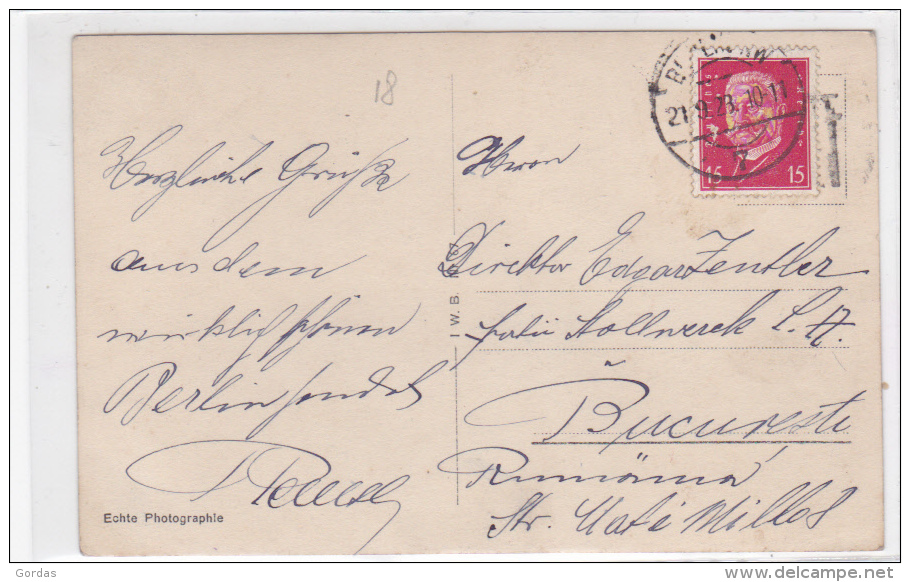 18
Herzliche Grüße
aus dem
wirklich schönen
Berlin sendet
Echte Photographie
I. W. B.
BERLIN NW
21.9.28. 10-11
15 15
Herrn
Direktor Edgar Zentler
Stollwerck
București
Rumänien
Str.
Gordas
delcampe.net